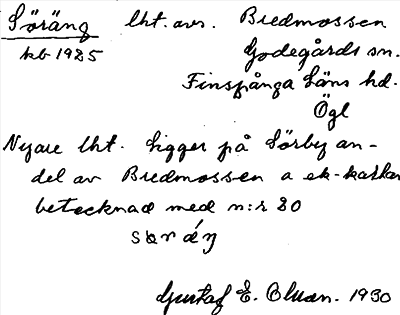 Söräng lht. avs. Bredmossen
kb 1925 Godegårds sn.
Finspånga Läns hd.
Ögl
Nyare lht. Ligger på Sörby an-
del av Bredmossen a ek-kartan
betecknad med n:r 20
Gustaf E. 1930